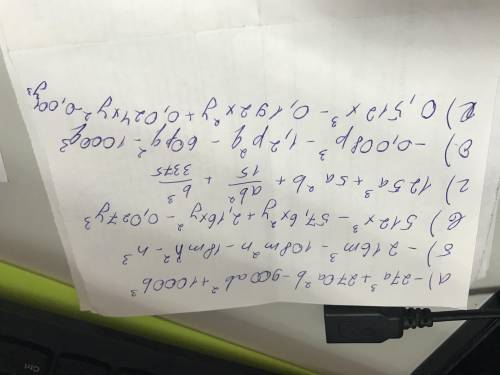 а) -27a³+270a²b-900ab²+1000b³
б) -216m³-108m²n-18mn²-n³
в) 512x³-57,6x²y+2,16xy²-0,027y³
г) 125a³+5a²b+ab²/15+b³/3375
д) -0,008p³-1,2p²q-60pq²-1000q³
е) 0,512x³-0,192x²y+0,024xy²-0,001y³
Ctrl
Alt